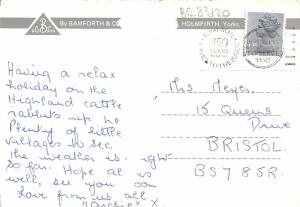 BC 83/20
By BAMFORTH & CO HOLMFIRTH, Yorks.
350
YEARS
Having a relax
holiday on the
Highland cattle
rabbits up, he
Plenty of little
villages to see.
The weather is right
so far. Hope al is
well, see you oon
Love from us all
"Archie" X
Mrs Meyer.
15 Queens
Drive
BRISTOL.
BS7 8SR.